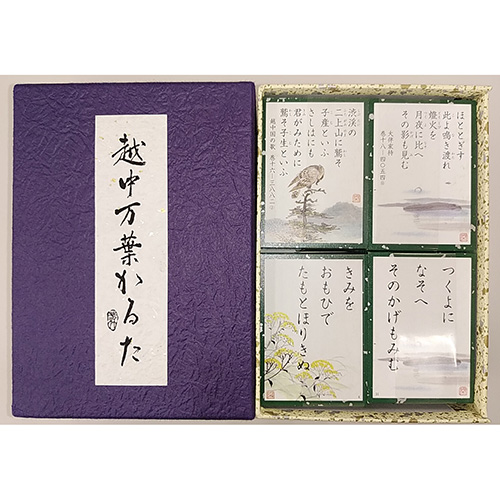 越中万葉かるた
ほととぎす
此よ鳴き渡れ
燈火を
月夜に比へ
その影も見む
大伴家持
巻十八―四〇五四
渋渓の
二上山に鷲そ
子産といふ
さしはにも
君がみために
鷲そ子生といふ
越中国の歌 巻十六―三八八二
つくよに
なそへ
そのかげもみむ
きみを
おもひで
たもとほりきぬ